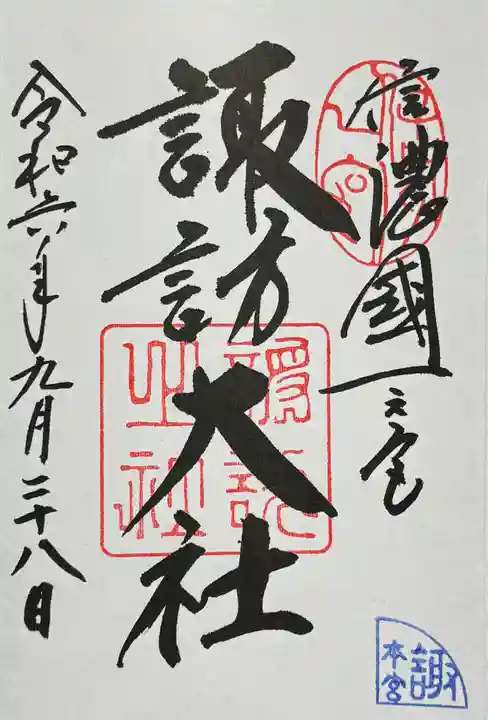 信濃國一之宮
諏訪大社
令和六年九月二十八日
諏
本宮